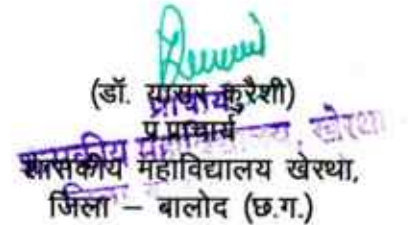 (डॉ. यासर कुरैशी)
प्र.प्राचार्य
शासकीय महाविद्यालय खेरथा,
जिला – बालोद (छ.ग.)
प्राचार्य
शासकीय महाविद्यालय, खेरथा